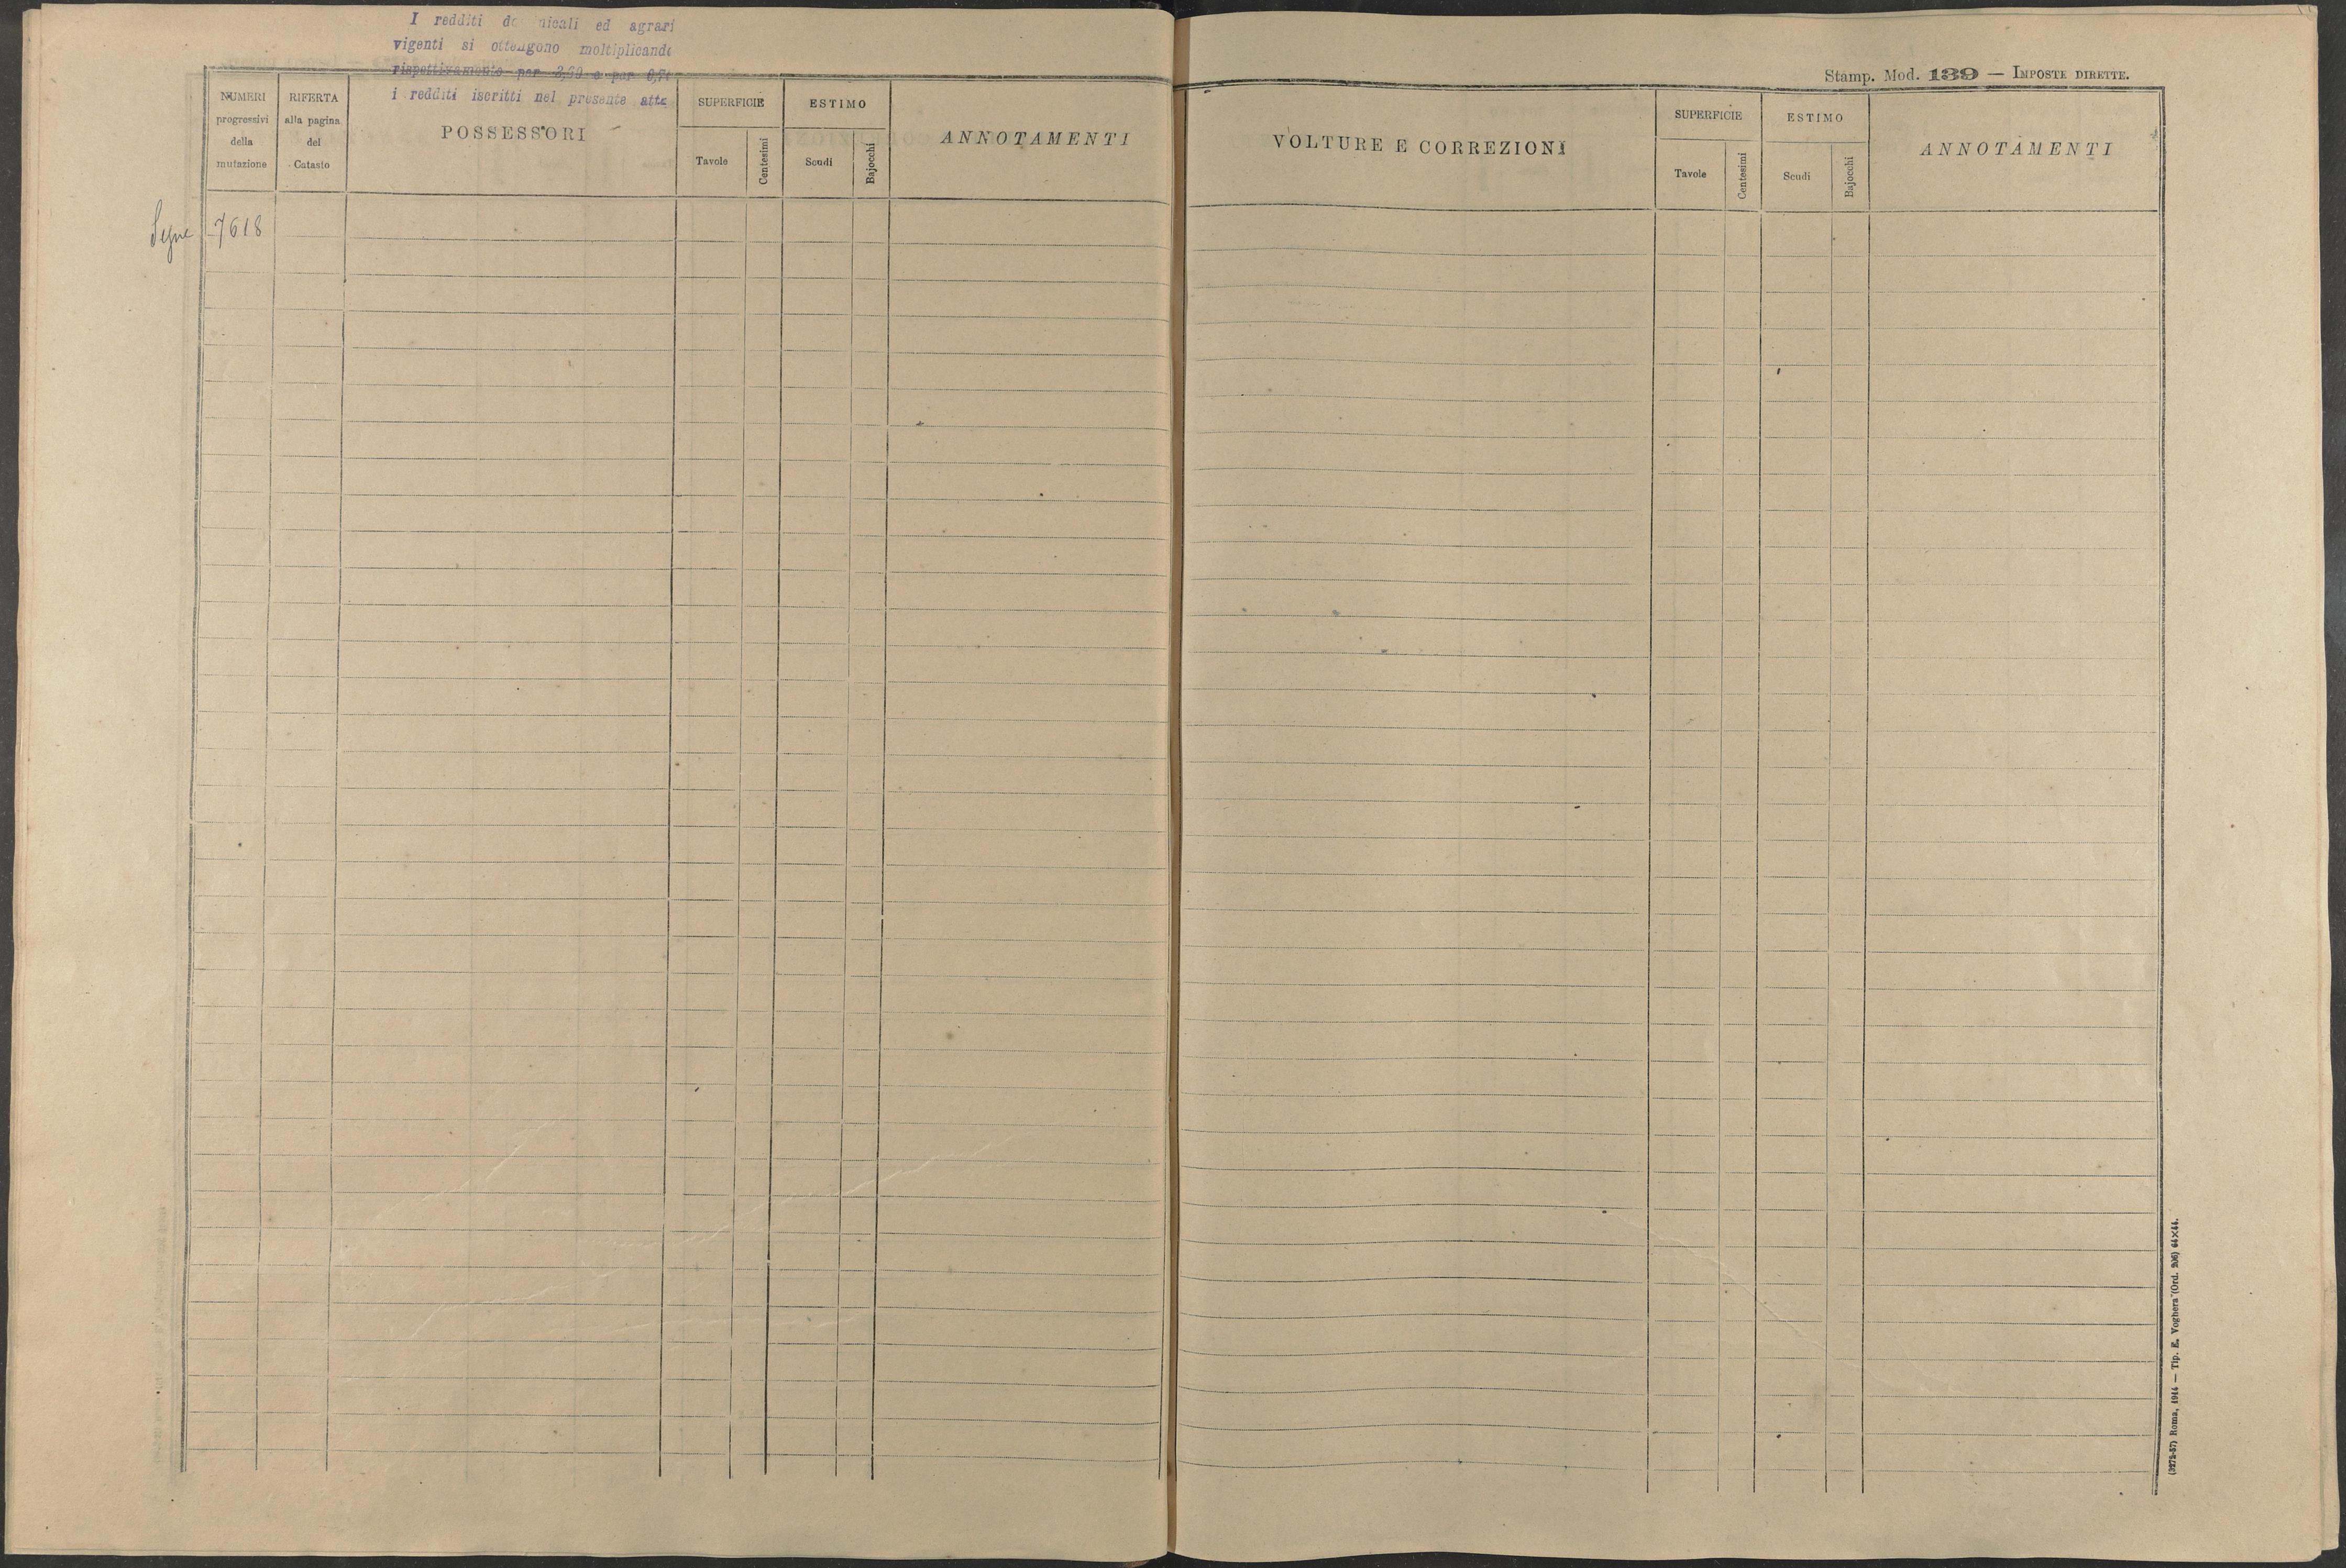 I redditi do nicali ed agrari
vigenti si ottengono moltiplicando
rispettivamente per e per
i redditi iscritti nel presente atto
Stamp. Mod. 139 — IMPOSTE DIRETTE.
NUMERI
progressivi
della
mutazione
RIFERTA
alla pagina
del
Catasto
POSSESSORI
SUPERFICIE
Tavole
Centesimi
ESTIMO
Scudi
Bajocchi
ANNOTAMENTI
VOLTURE E CORREZIONI
SUPERFICIE
Tavole
Centesimi
ESTIMO
Scudi
Bajocchi
ANNOTAMENTI
Segue 7618
(3272-57) Roma, 1914 — Tip. E. Voghera (Ord. 206) 64×44.